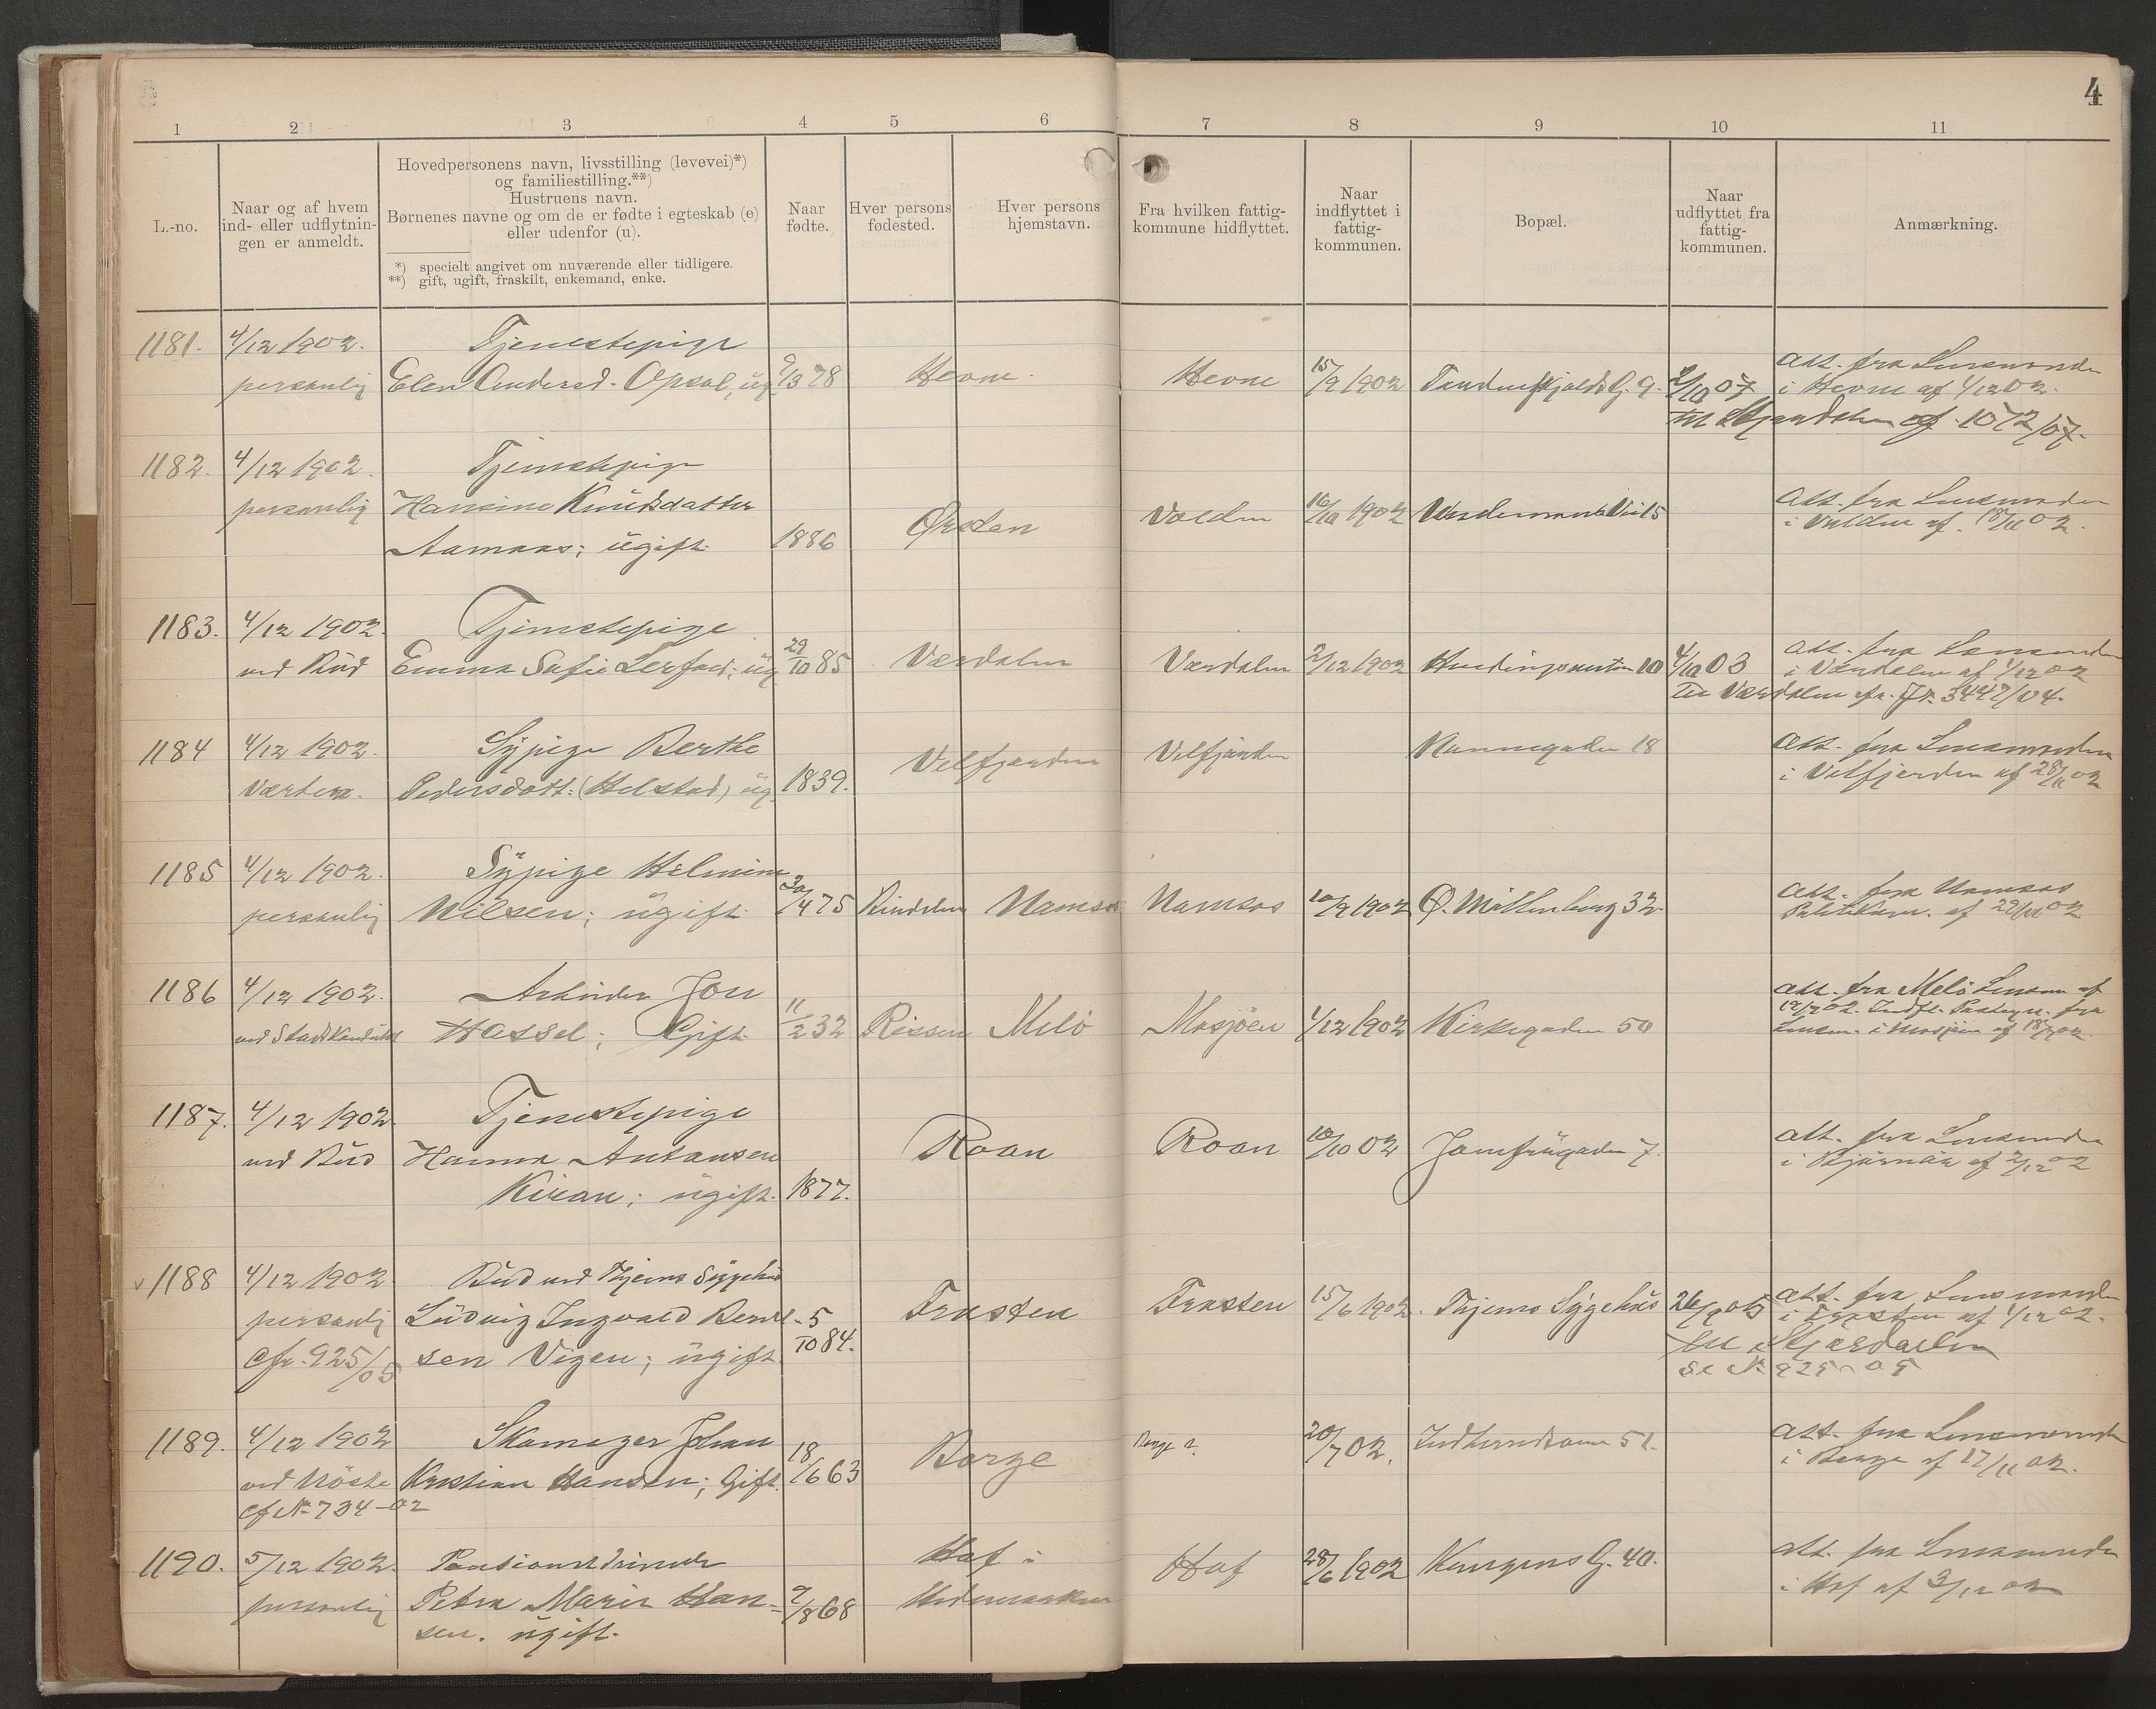 4
1 2 3 4 5 6 7 8 9 10 11
L.-no.
Naar og af hvem
ind- eller udflytnin-
gen er anmeldt.
Hovedpersonens navn, livsstilling (levevei)*)
og familiestilling.**)
Hustruens navn.
Børnenes navne og om de er fødte i egteskab (e)
eller udenfor (u).
*) specielt angivet om nuværende eller tidligere.
**) gift, ugift, fraskilt, enkemand, enke.
Naar
fødte.
Hver persons
fødested.
Hver persons
hjemstavn.
Fra hvilken fattig-
kommune hidflyttet.
Naar
indflyttet i
fattig-
kommunen.
Bopæl.
Naar
udflyttet fra
fattig-
kommunen.
Anmærkning.
1181. 4/12 1902. Tjenestepige
personlig Elen Andersd. Opsal, ug. 9/3 78 Hevne Hevne 15/9 1902 Tordenskjolds G. 9. 2/10 07
Att. fra Lensmanden
i Hevne af 4/12 02.
til Stjørdalen cf. 1072/07.
1182. 4/12 1902. Tjenestepige
personlig Hansine Knudsdatter
Aamaas; ugift. 1886 Ørsten Volden 16/10 1902
Att. fra Lensmanden
i Volden af 18/11 02.
1183. 4/12 1902. Tjenestepige
ved Bud Emma Sofie Lerfad; ug 29/10 85 Værdalen Værdalen 2/12 1902 4/10 03
Att. fra Lensmanden
i Værdalen af 1/12 02
Til Værdalen cfr. Jr. 3447/04.
1184 4/12 1902. Sypige Berthe
Værten. Pedersdatt. (Helstad) ug. 1839. Velfjorden Velfjorden Nunnegaden 18
Att. fra Lensmanden
i Velfjorden af 28/11 02
1185 4/12 1902. Sypige Helmine
personlig Nilsen; ugift 30/4 75 Rindalen Namsos Namsos 10/9 1902 Ø. Møllenberg 32.
Att. fra Namsos
Politikam. af 29/11 02
1186 4/12 1902. Arbeider Jon
Hassel; Gift. 11/2 32 Rissen Melö Mosjöen 4/12 1902 Kirkegaden 50
Att. fra Melö Lensm. af
Lensm. i Mosjöen af 18/9 02.
1187. 4/12 1902 Tjenestepige
ved Bud Hanna Antonsen
Kiran; ugift. 1877. Roan Roan 10/10 02 Jomfrugaden 7.
Att. fra Lensmanden
i Bjørnör af 2/12 02
v 1188 4/12 1902 Bud ved Thjems Sygehus
personlig Ludvig Ingvald Bernt-
cfr. 925/05 sen Vigen; ugift. 5/10 84. Frosten Frosten 15/6 1902. Thjems Sygehus 26/9 05
Att. fra Lensmanden
i Frosten af 4/12 02.
til Stjørdalen
Se No 925 - 05
1189. 4/12 1902 Skomager Johan
ved Kristian Hansen; Gift. 18/6 63 Borge Borge ? 20/7 02. Indherredsveien 51.
cf No 734-02
Att. fra Lensmanden
i Borge af 17/11 02.
1190. 5/12 1902. Pensionatdrivende
personlig Petra Marie Han-
sen. ugift. 9/8 68 Hof i
Hedemarken Hof 28/6 1902 Kongens G. 40.
Att. fra Lensmanden
i Hof af 3/12 02